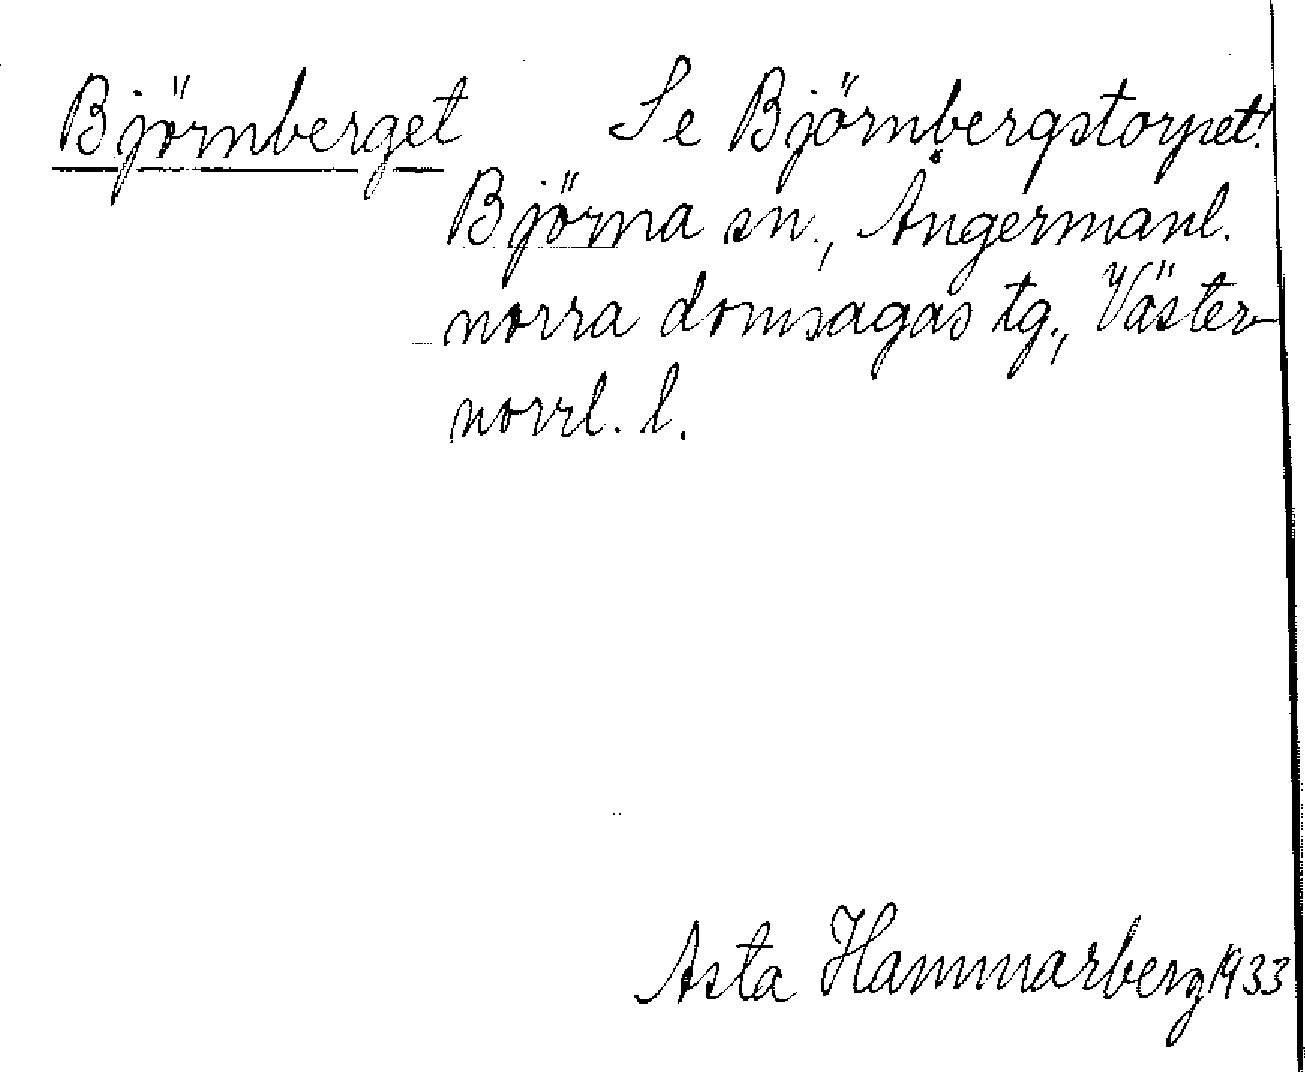 Björnberget Se Björnbergstorpet!
Björna sn., Ångermanl.
norra domsagas tg., Väster-
norrl. l.
Asta Hammarberg 1933